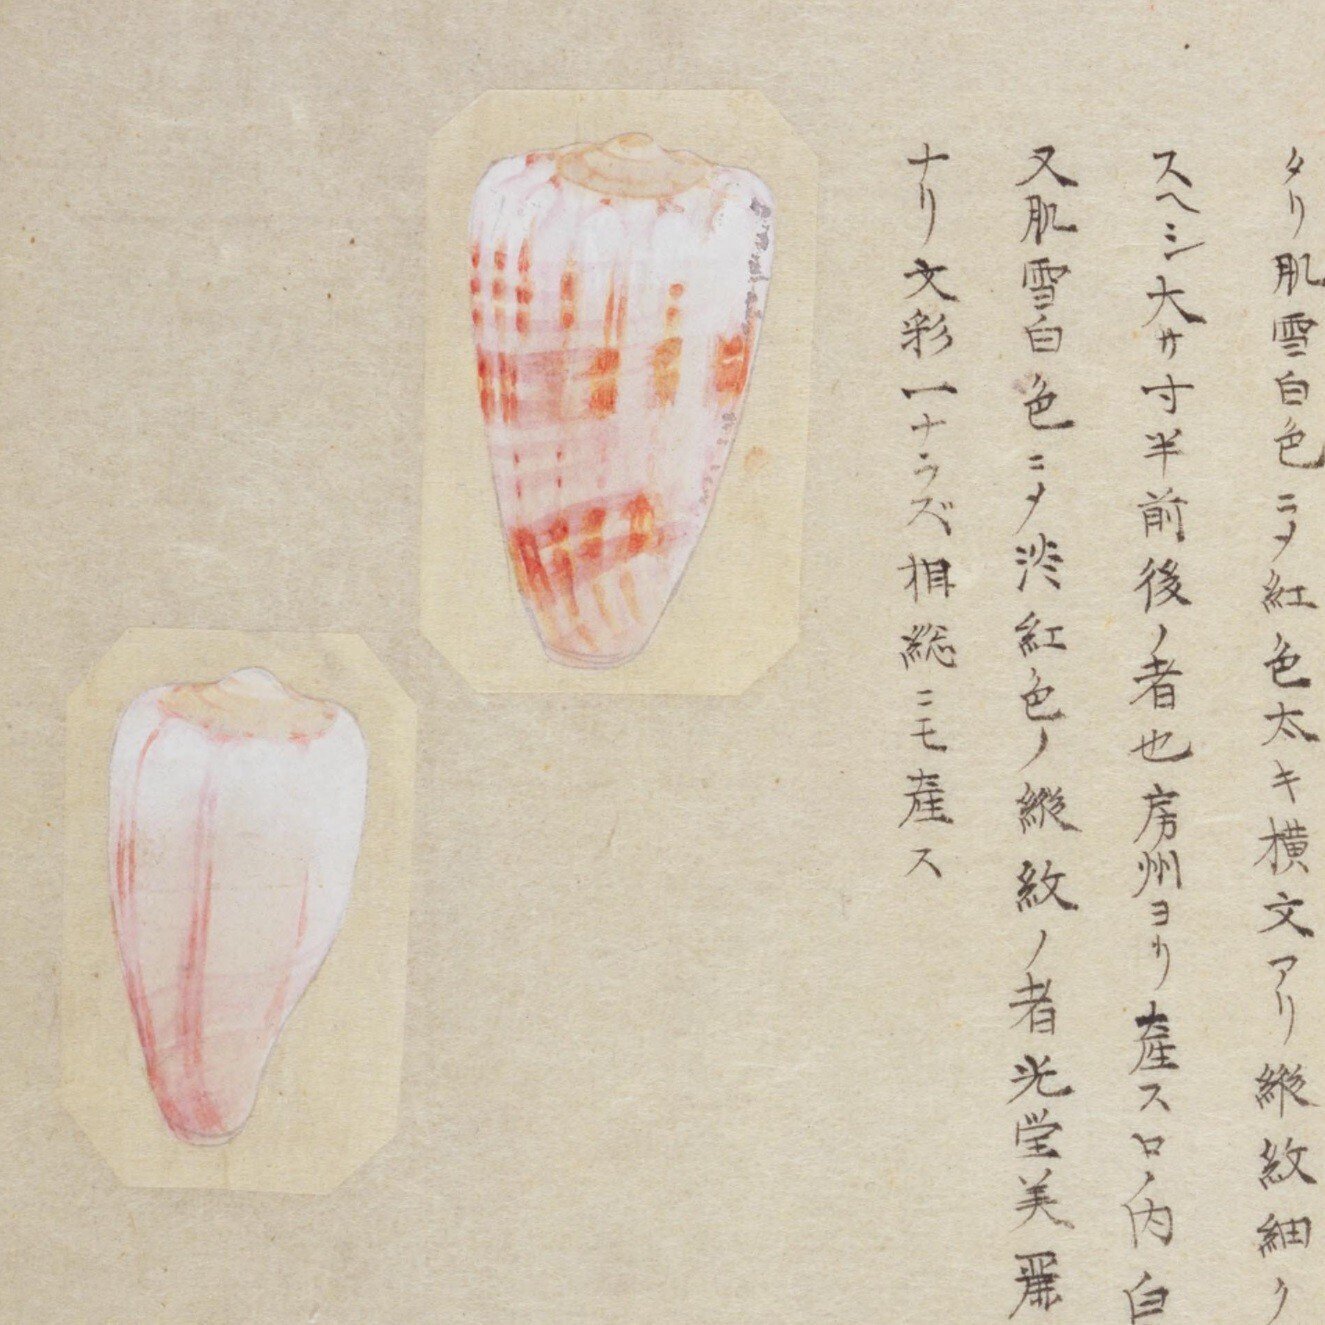 タリ肌雪白色ニメ紅色太キ横文アリ縦紋細ク
スヘシ大サ寸半前後ノ者也房州ヨリ産ス口ノ内白
又肌雪白色ニメ淡紅色ノ縦紋ノ者光莹美麗
ナリ文彩一ナラズ相総ニモ産ス